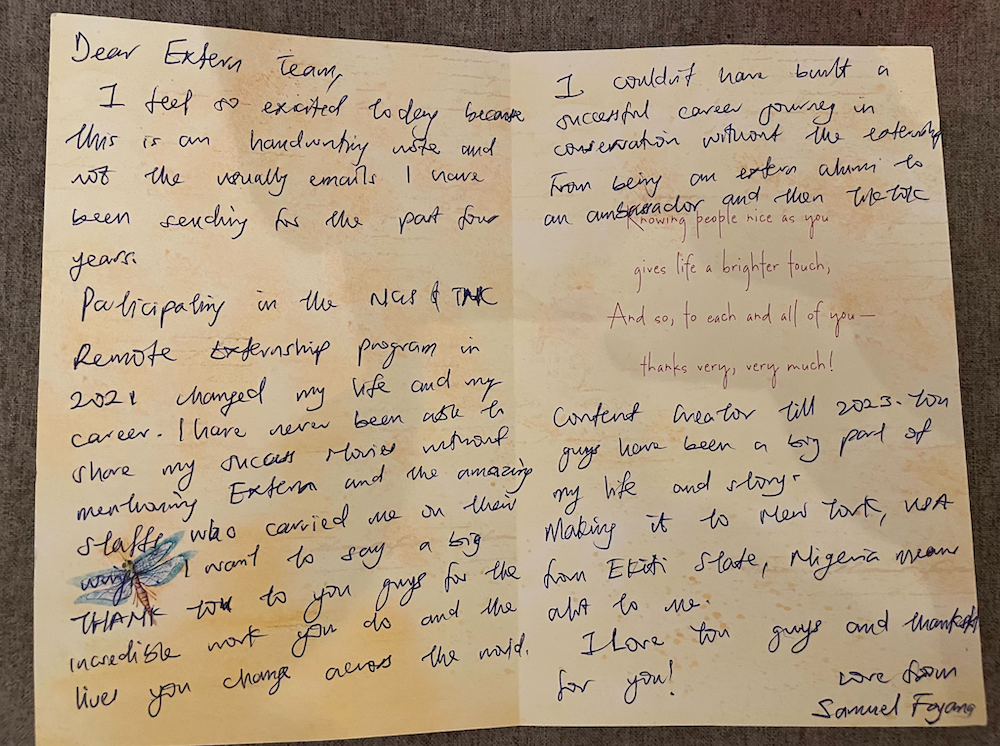 Dear Extern Team,
I feel so excited today because
this is an handwriting note and
not the usually emails I have
been sending for the past four
years.
Participating in the NGS & TNC
Remote Externship program in
2021 changed my life and my
career. I have never been able to
share my success stories without
mentioning Extern and the amazing
staffs who carried me on their
wings I want to say a big
THANK YOU to you guys for the
incredible work you do and the
lives you change across the world.
I couldn't have built a
successful career journey in
conservation without the externship
From being an extern alumni to
an ambassador and then TikTok
Knowing people nice as you
gives life a brighter touch,
And so, to each and all of you—
thanks very, very much!
Content Creator till 2023. You
guys have been a big part of
my life and story.
Making it to New York, USA
from Ekiti State, Nigeria means
alot to me.
I Love You guys and
for you!
Love from
Samuel